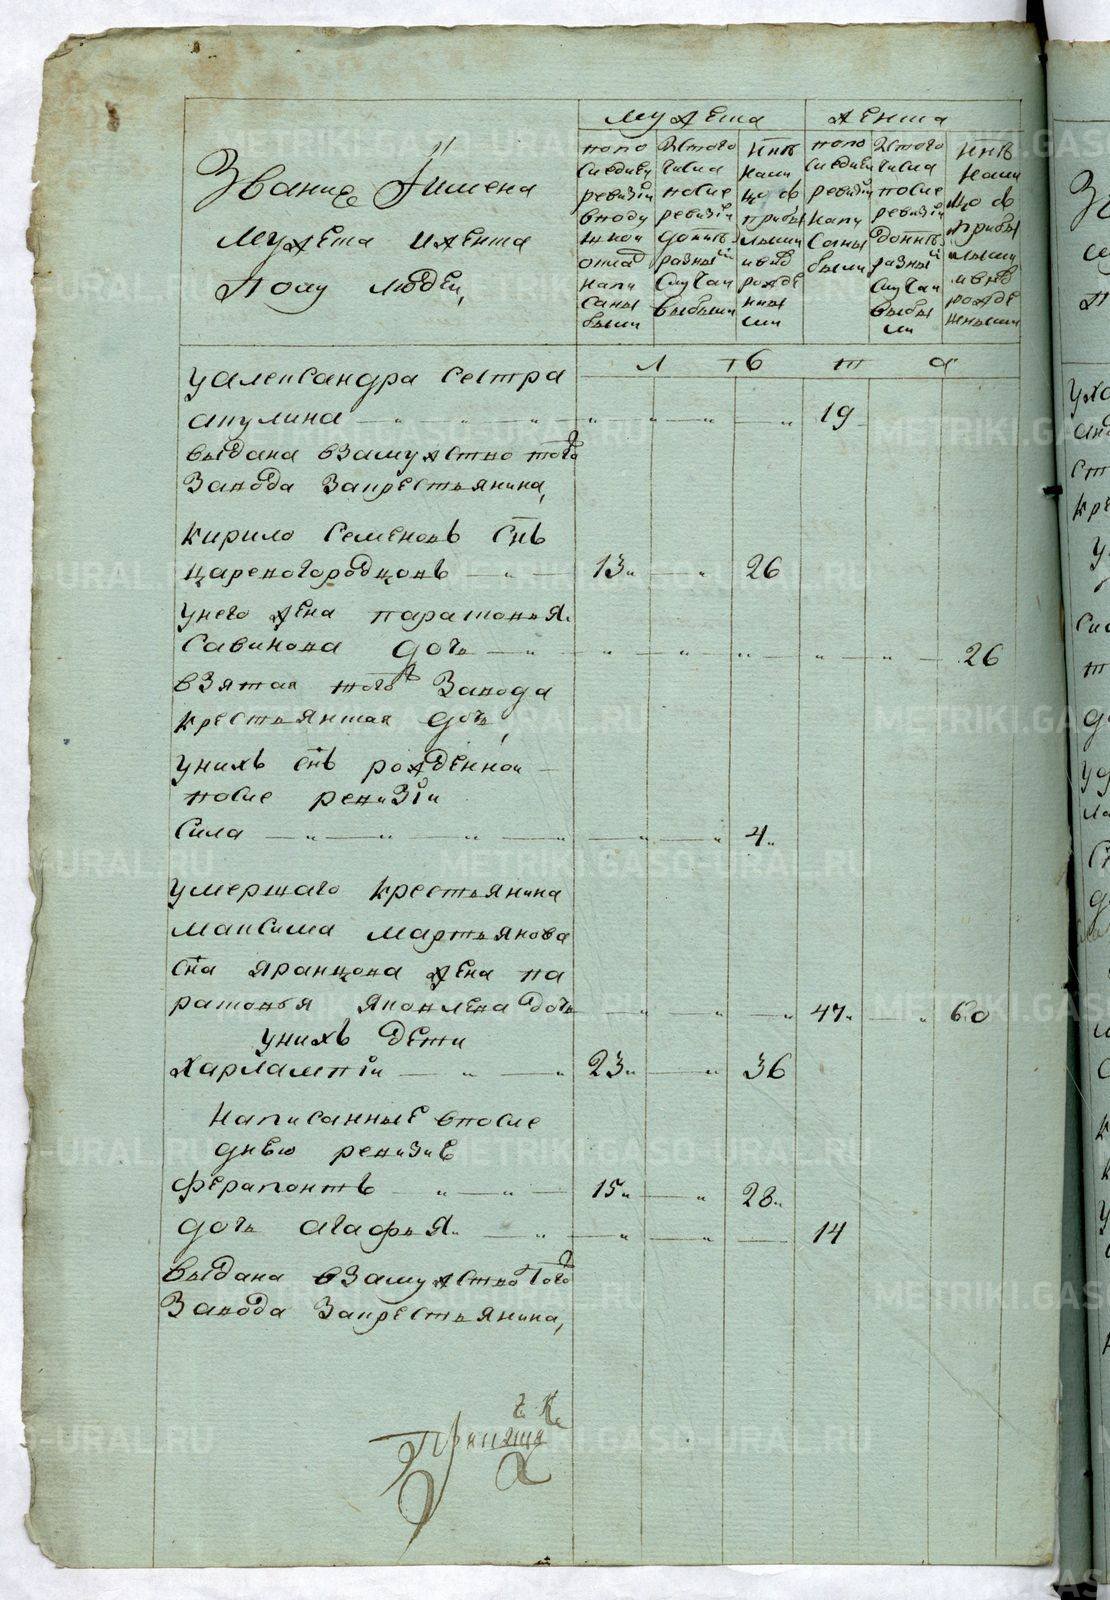 Званiе Имена
мужеска иженска
полу людей,
мужеска
женска
попо
следней
ревизiи
вподу
шной
оклад
напи
саны
были
Изтого
числа
после
ревизiи
допить
разный
Случаи
выбыли
Инѣ
нали
цо съ
прибы
лыми
ивнв
рожде
нны
ми
попо
следней
ревизiи
напи
саны
были
Изтого
числа
после
ревизiи
допить
разный
Случаи
выбы
ли
Инѣ
нали
цо съ
прибы
лыми
ивнв
рожде
нными
л ѣ т а
уалександра сестра
акулина 19
выдана взамужство того
завода закрестьянина,
кирило семеновъ снъ
цареногородцовъ 13 26
унего жена парасковья
савинова дочь 26
взятая того завода
крестьянская дочь,
унихъ снъ рожденной
после ревизiи
сила 4
умершаго крестьянина
максима мартьянова
сна яранцова жена па
расковья яковлева дочь 47 60
унихъ дети
харлампiи 23 36
написанные впосле
днею ревизiе
ферапонтъ 15 28
дочь агафья 14
выдана взамужство того
завода закрестьянина,
METRIKI.GASO-URAL.RU